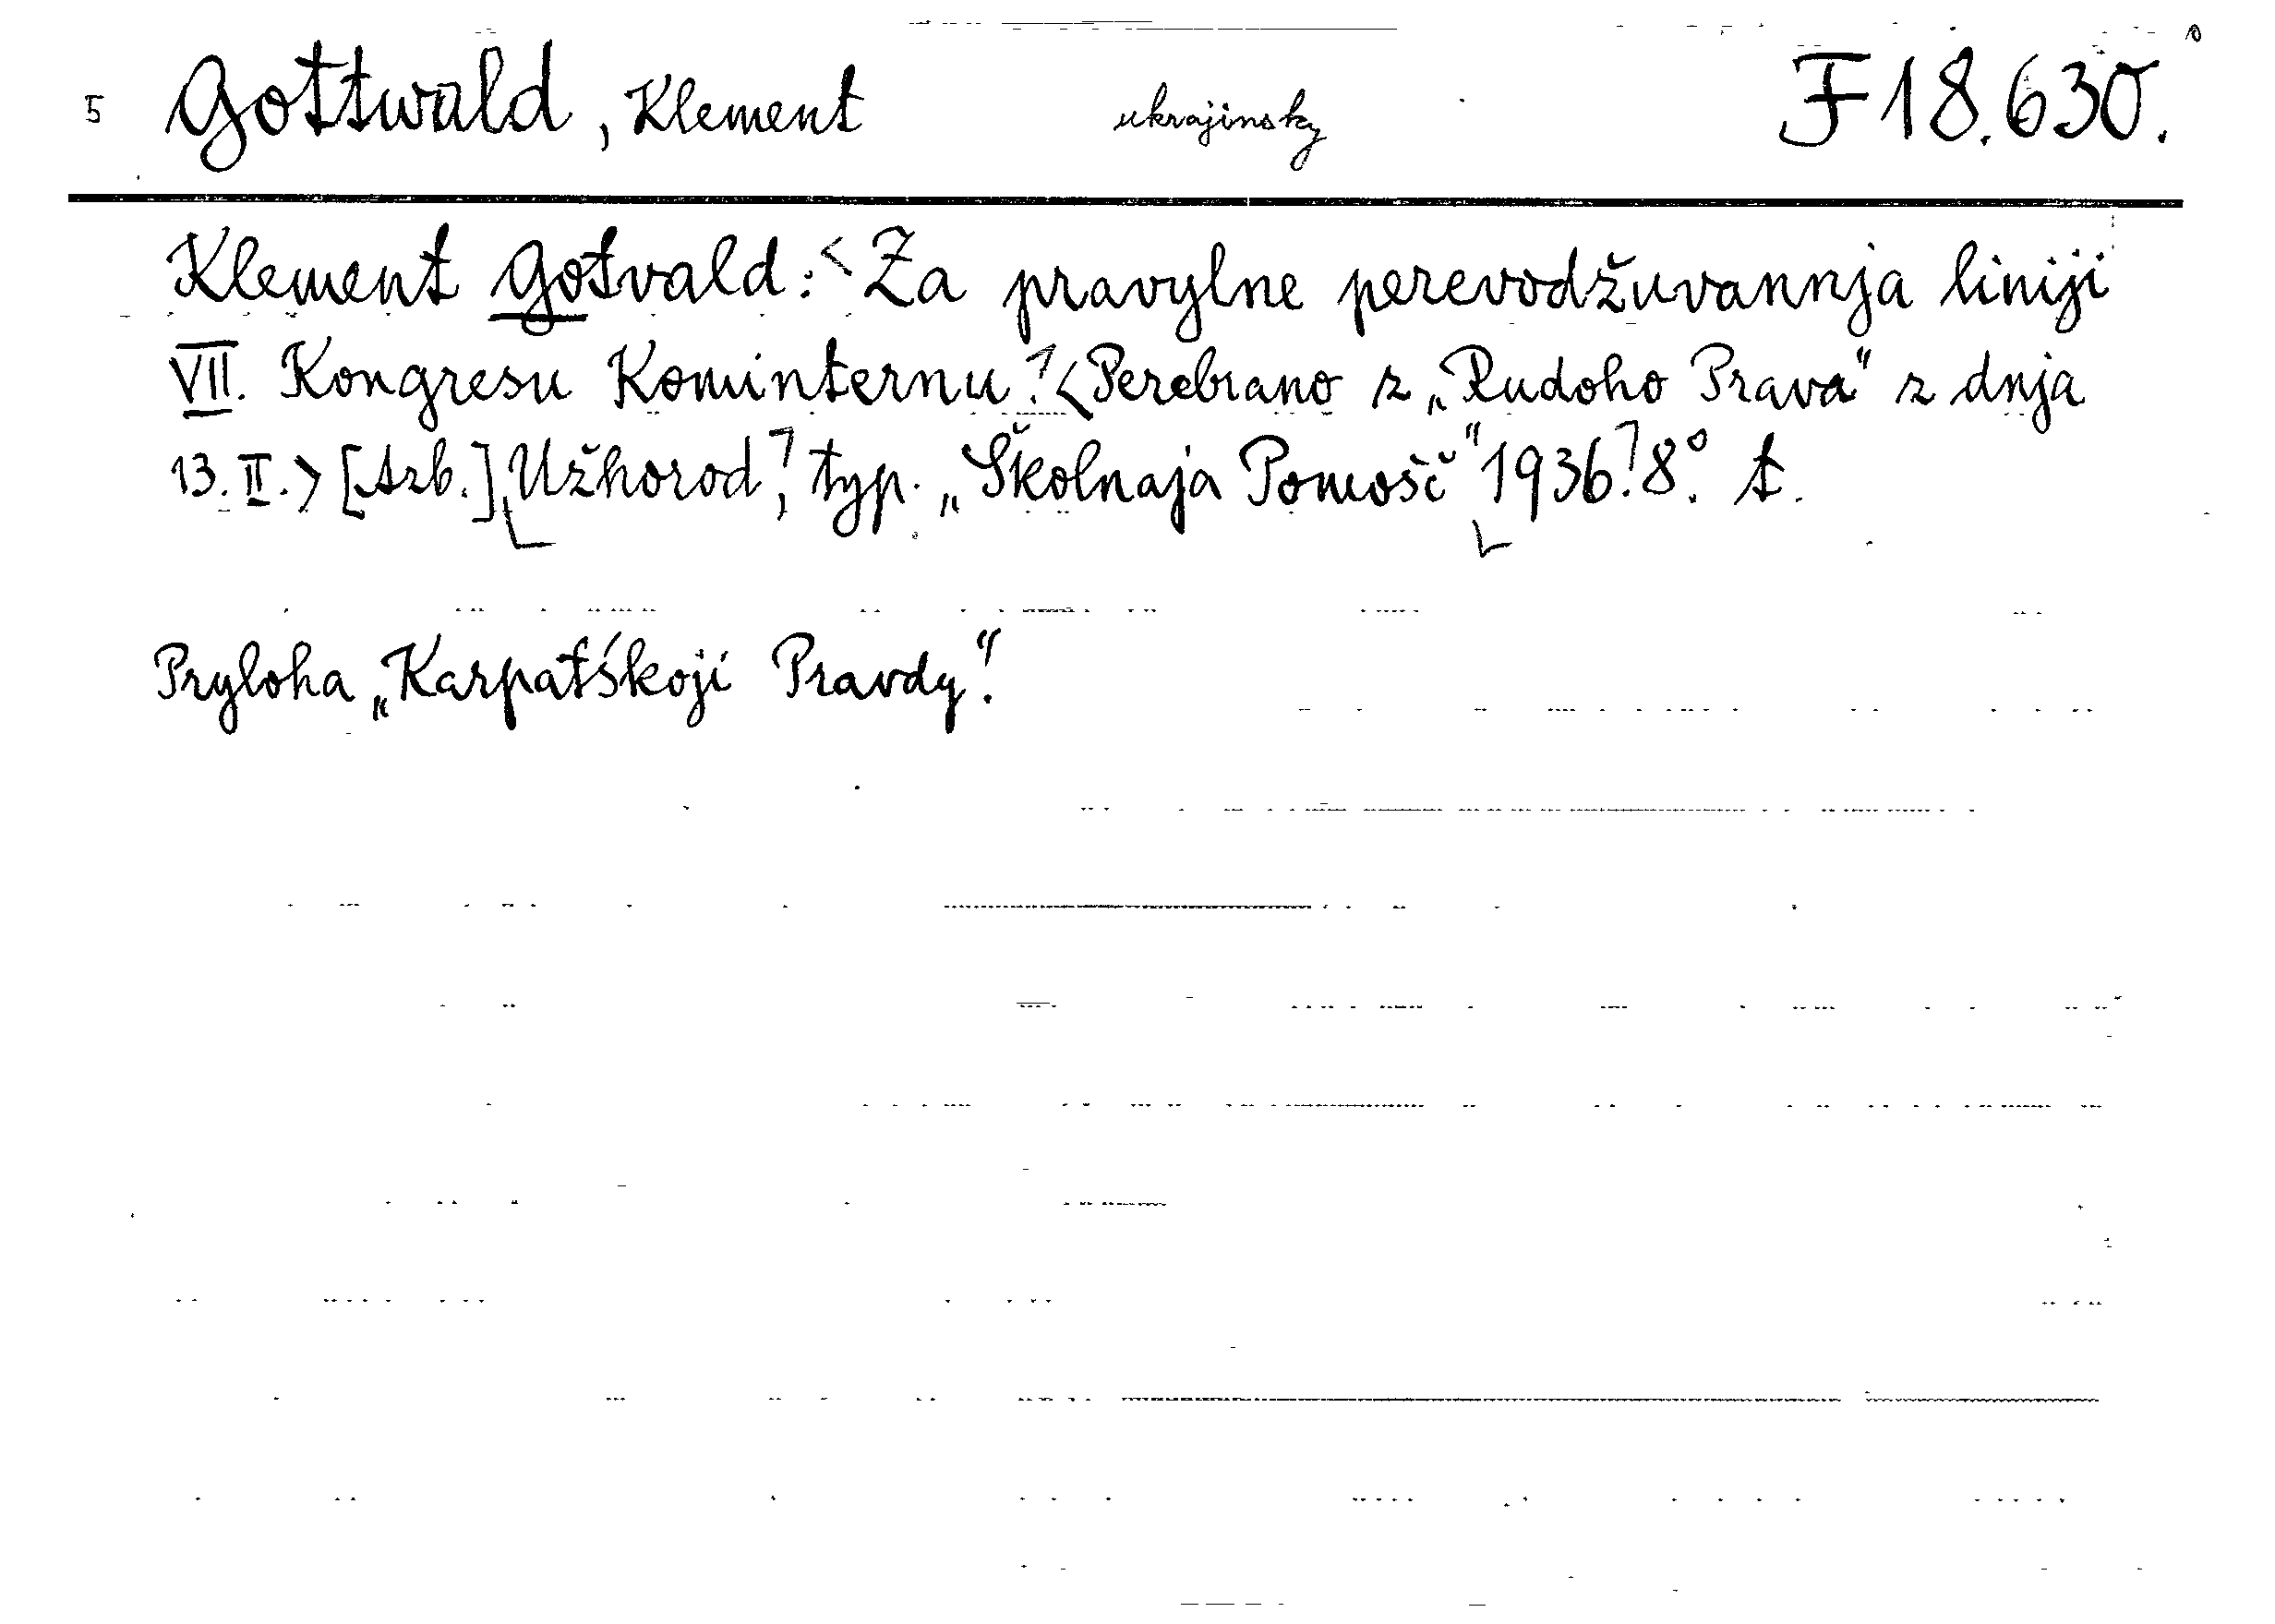 5 Gottwald, Klement ukrajinsky F 18.630.
Klement Gotvald: <Za pravylne perevodžuvannja liniji
VII. Kongresu Kominternu. <Perebrano z „Rudoho Prava" z dnja
13. II.> [Azb.] Užhorod, typ. „Školnaja Pomošč" 1936. 8°. t.
Pryloha „Karpatśkoji Pravdy".